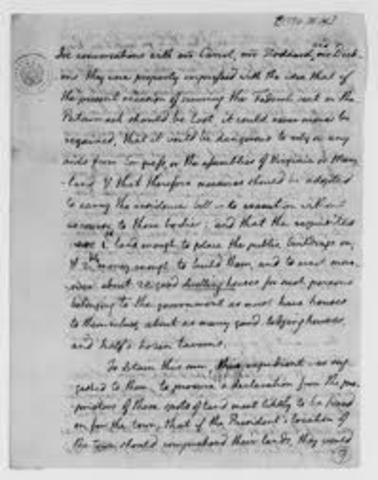 In conversations with mr Carrol, mr Stoddard, and mr Deak-
ins they were properly impressed with the idea that if
the present occasion of securing the Federal seat on the
Patowmack should be lost, it could never more be
regained, that it would be dangerous to rely on any
aids from Congress, or the assemblies of Virginia or Mary-
land, & that therefore measures should be adopted
to carry the residence bill into execution without
recourse to those bodies: and that the requisites
were 1st land enough to place the public buildings on,
& 2ly money enough to build them, and to erect more-
over about 20 good dwelling houses for such persons
belonging to the government as must have houses
to themselves, about as many good lodging houses,
and half a dozen taverns.
To obtain this sum, this expedient was sug-
gested to them, to procure a declaration from the pro-
prietors of those spots of land most likely to be fixed
on for the town, that if the President's location of
the town should comprehend their lands, they would